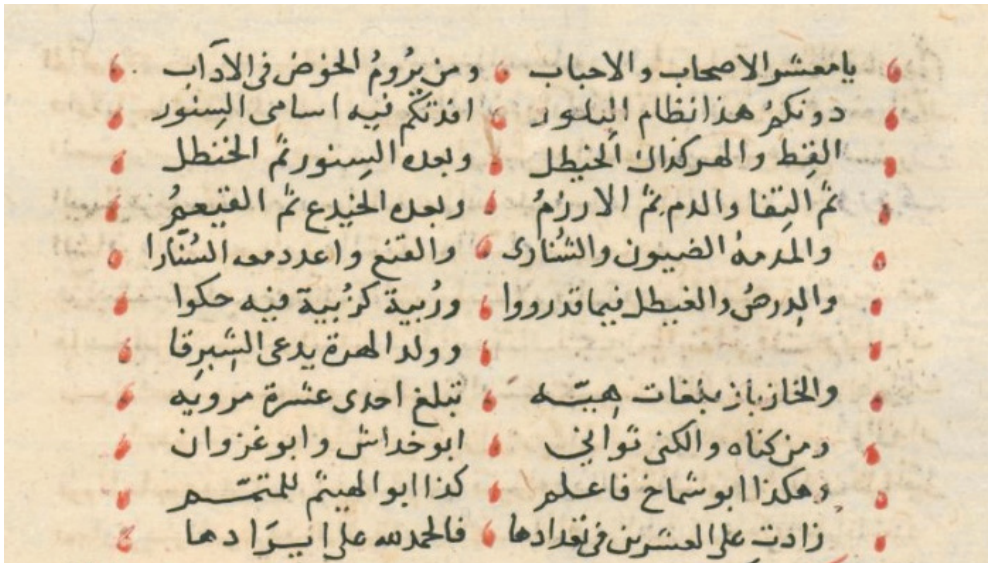 يا معشر الاصحاب والاحباب ومن يروم الخوض في الآداب
دونكم هذا نظام البلور افدتكم فيه اسامى السنور
القط والهر كذاك الخيطل وبعده السنور ثم الخنطل
ثم التفا والدم ثم الارزم وبعده الخيدع ثم القيعم
والمدمة الضيون والشنارى والقنع واعدد معه السنارا
والدرص والغيطل فيما قد رووا وزبية كزبية فيه حكوا
وولد الهرة يدعى الشبرقا
والخازباز بلغات هيّه تبلغ احدى عشرة مرويه
ومن كناه والكنى توانى ابو خداش وابو غزوان
وهكذا ابو شماخ فاعلم كذا ابو الهيثم للمتمم
زادت على العشرين في تعدادها فالحمد لله على ايرادها